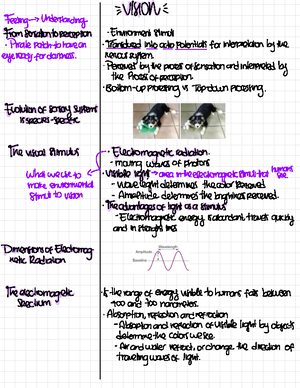 VISION
Feeling → Understanding
From Sensation to Perception
• Pirate Patch - to have an eye ready for darkness.
• Environment Stimuli
• Transduced into action potentials for interpretation by the nervous system.
• Perceived by the process of sensation and interpreted by the process of perception.
• Bottom-up processing vs Top-down processing.
Evolution of Sensory Systems is species-specific
The Visual Stimulus
What we use to make environmental stimuli to vision
• Electromagnetic radiation.
- moving waves of photons
• Visible light → area in the electromagnetic stimuli that humans see.
- Wave length determines the color perceived
- Amplitude determines the brightness perceived.
• The advantages of light as a stimulus
- Electromagnetic energy is abundant, travels quickly and in straight lines
Dimensions of Electromagnetic Radiation
Wavelength
Amplitude
Baseline
The electromagnetic Spectrum
• Is the range of energy visible to humans falls between 400 and 700 nanometers.
• Absorption, reflection and refraction
- Absorption and reflection of visible light by objects determine the colors we see.
- Air and water refract, or change the direction of traveling waves of light.